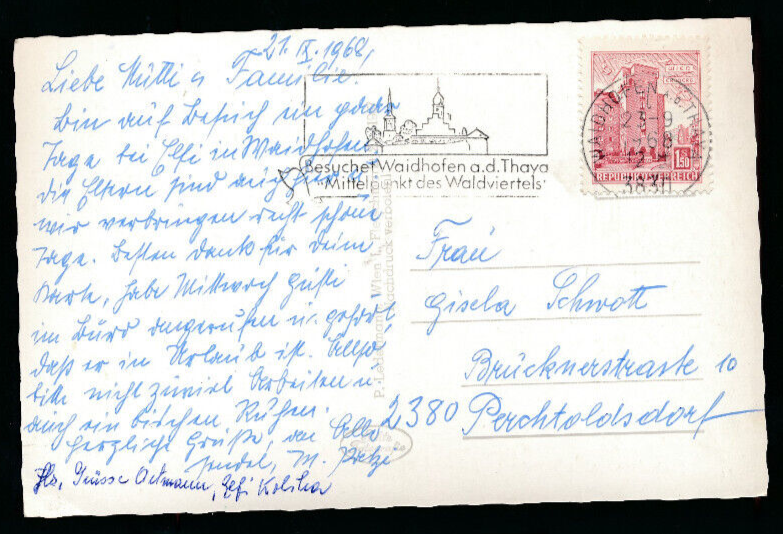 21. IX. 1968,
Liebe Mutti u Familie.
Bin auf Besuch un paar
Tage bei Elfi in Waidhofen
die Eltern sind auch hier
wir verbringen recht schöne
Tage. Besten dank für deine
Karte, habe Mittwoch Gusti
im Büro angerufen u. gehört
daß er in Urlaub ist. Allso
bitte nicht zuviel Arbeiten u.
auch ein bischen Ruhen.
Herzliche Grüße, an Alle
sendet, M.
Hlz. Grüsse Oetmann, Elfi Koliha
Besuchet Waidhofen a.d. Thaya
"Mittelpunkt des Waldviertels"
WAIDHOFEN a.d. THAYA
23-9
68
3830
1.50
REPUBLIK ÖSTERREICH
P. Ledermann, Wien I.,
Nachdruck verboten
Frau
Gisela Schwott
Brücknerstraste 10
2380 Perchtoldsdorf